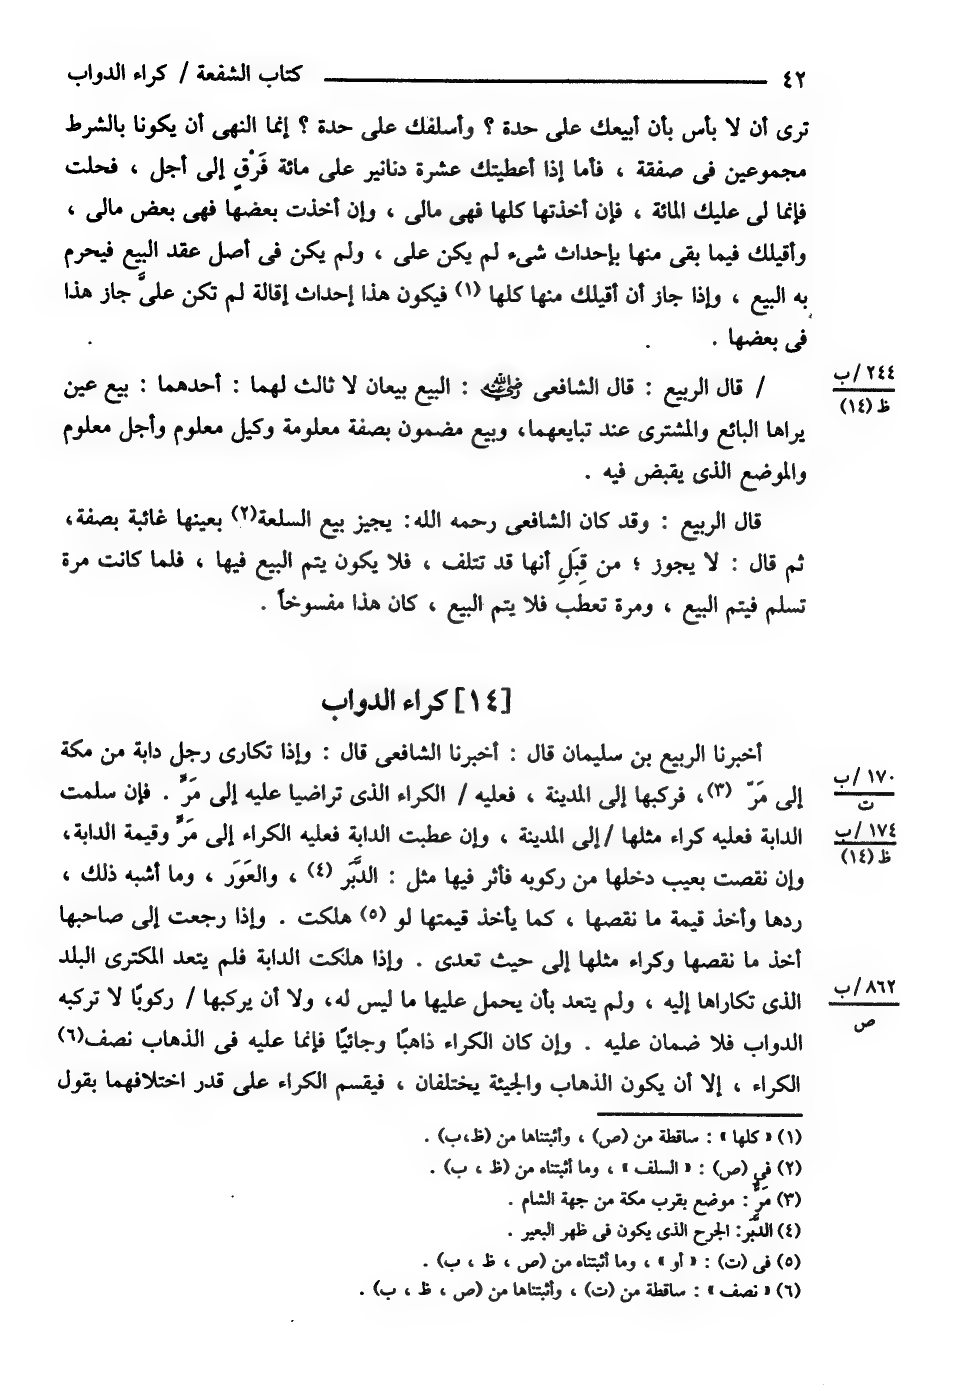 ٤٢ كتاب الشفعة / كراء الدواب
ترى أن لا بأس بأن أبيعك على حدة ؟ وأسلفك على حدة ؟ إنما النهى أن يكونا بالشرط
مجموعين فى صفقة ، فأما إذا أعطيتك عشرة دنانير على مائة فَرْقٍ إلى أجل ، فحلت
فإنما لى عليك المائة ، فإن أخذتها كلها فهى مالى ، وإن أخذت بعضها فهى بعض مالى ،
وأقيلك فيما بقى منها بإحداث شىء لم يكن على ، ولم يكن فى أصل عقد البيع فيحرم
به البيع ، وإذا جاز أن أقيلك منها كلها (١) فيكون هذا إحداث إقالة لم تكن علىَّ جاز هذا
فى بعضها .
/ قال الربيع : قال الشافعى رضي الله عنه : البيع بيعان لا ثالث لهما : أحدهما : بيع عين
٢٤٤/ب
ظ (١٤)
يراها البائع والمشترى عند تبايعهما، وبيع مضمون بصفة معلومة وكيل معلوم وأجل معلوم
والموضع الذى يقبض فيه .
قال الربيع : وقد كان الشافعى رحمه الله: يجيز بيع السلعة(٢) بعينها غائبة بصفة،
ثم قال : لا يجوز ؛ من قِبَلِ أنها قد تتلف ، فلا يكون يتم البيع فيها ، فلما كانت مرة
تسلم فيتم البيع ، ومرة تعطب فلا يتم البيع ، كان هذا مفسوخاً .
[١٤] كراء الدواب
أخبرنا الربيع بن سليمان قال : أخبرنا الشافعى قال : وإذا تكارى رجل دابة من مكة
١٧٠/ب
ت
إلى مَرّ (٣)، فركبها إلى المدينة ، فعليه / الكراء الذى تراضيا عليه إلى مَرٍّ . فإن سلمت
الدابة فعليه كراء مثلها /إلى المدينة ، وإن عطبت الدابة فعليه الكراء إلى مَرٍّ وقيمة الدابة،
١٧٤/ب
ظ (١٤)
وإن نقصت بعيب دخلها من ركوبه فأثر فيها مثل : الدَّبَر (٤) ، والعَوَر ، وما أشبه ذلك ،
ردها وأخذ قيمة ما نقصها ، كما يأخذ قيمتها لو (٥) هلكت . وإذا رجعت إلى صاحبها
أخذ ما نقصها وكراء مثلها إلى حيث تعدى . وإذا هلكت الدابة فلم يتعد المكترى البلد
الذى تكاراها إليه ، ولم يتعد بأن يحمل عليها ما ليس له، ولا أن يركبها / ركوبًا لا تركبه
٨٦٢/ب
ص
الدواب فلا ضمان عليه . وإن كان الكراء ذاهبًا وجائيًا فإنما عليه فى الذهاب نصف(٦)
الكراء ، إلا أن يكون الذهاب والجيئة يختلفان ، فيقسم الكراء على قدر اختلافهما بقول
(١) « كلها » : ساقطة من (ص) ، وأثبتناها من (ظ،ب) .
(٢) في (ص) : « السلف » ، وما أثبتناه من (ظ ، ب) .
(٣) مَرٌّ : موضع بقرب مكة من جهة الشام .
(٤) الدَّبَر: الجرح الذى يكون فى ظهر البعير .
(٥) فى (ت) : « أو » ، وما أثبتناه من (ص ، ظ ، ب) .
(٦) « نصف » : ساقطة من (ت) ، وأثبتناها من (ص ، ظ ، ب) .